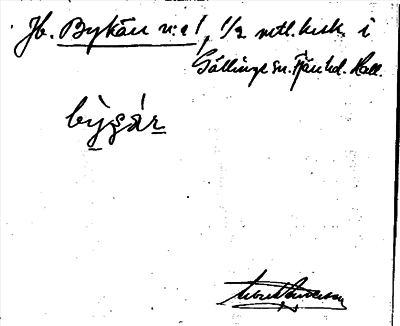 Jb. Bykärr n:o 1, 1/2 mtl. krsk. i
Gällinge sn. Fjäre hd. Hall.
bỳgár